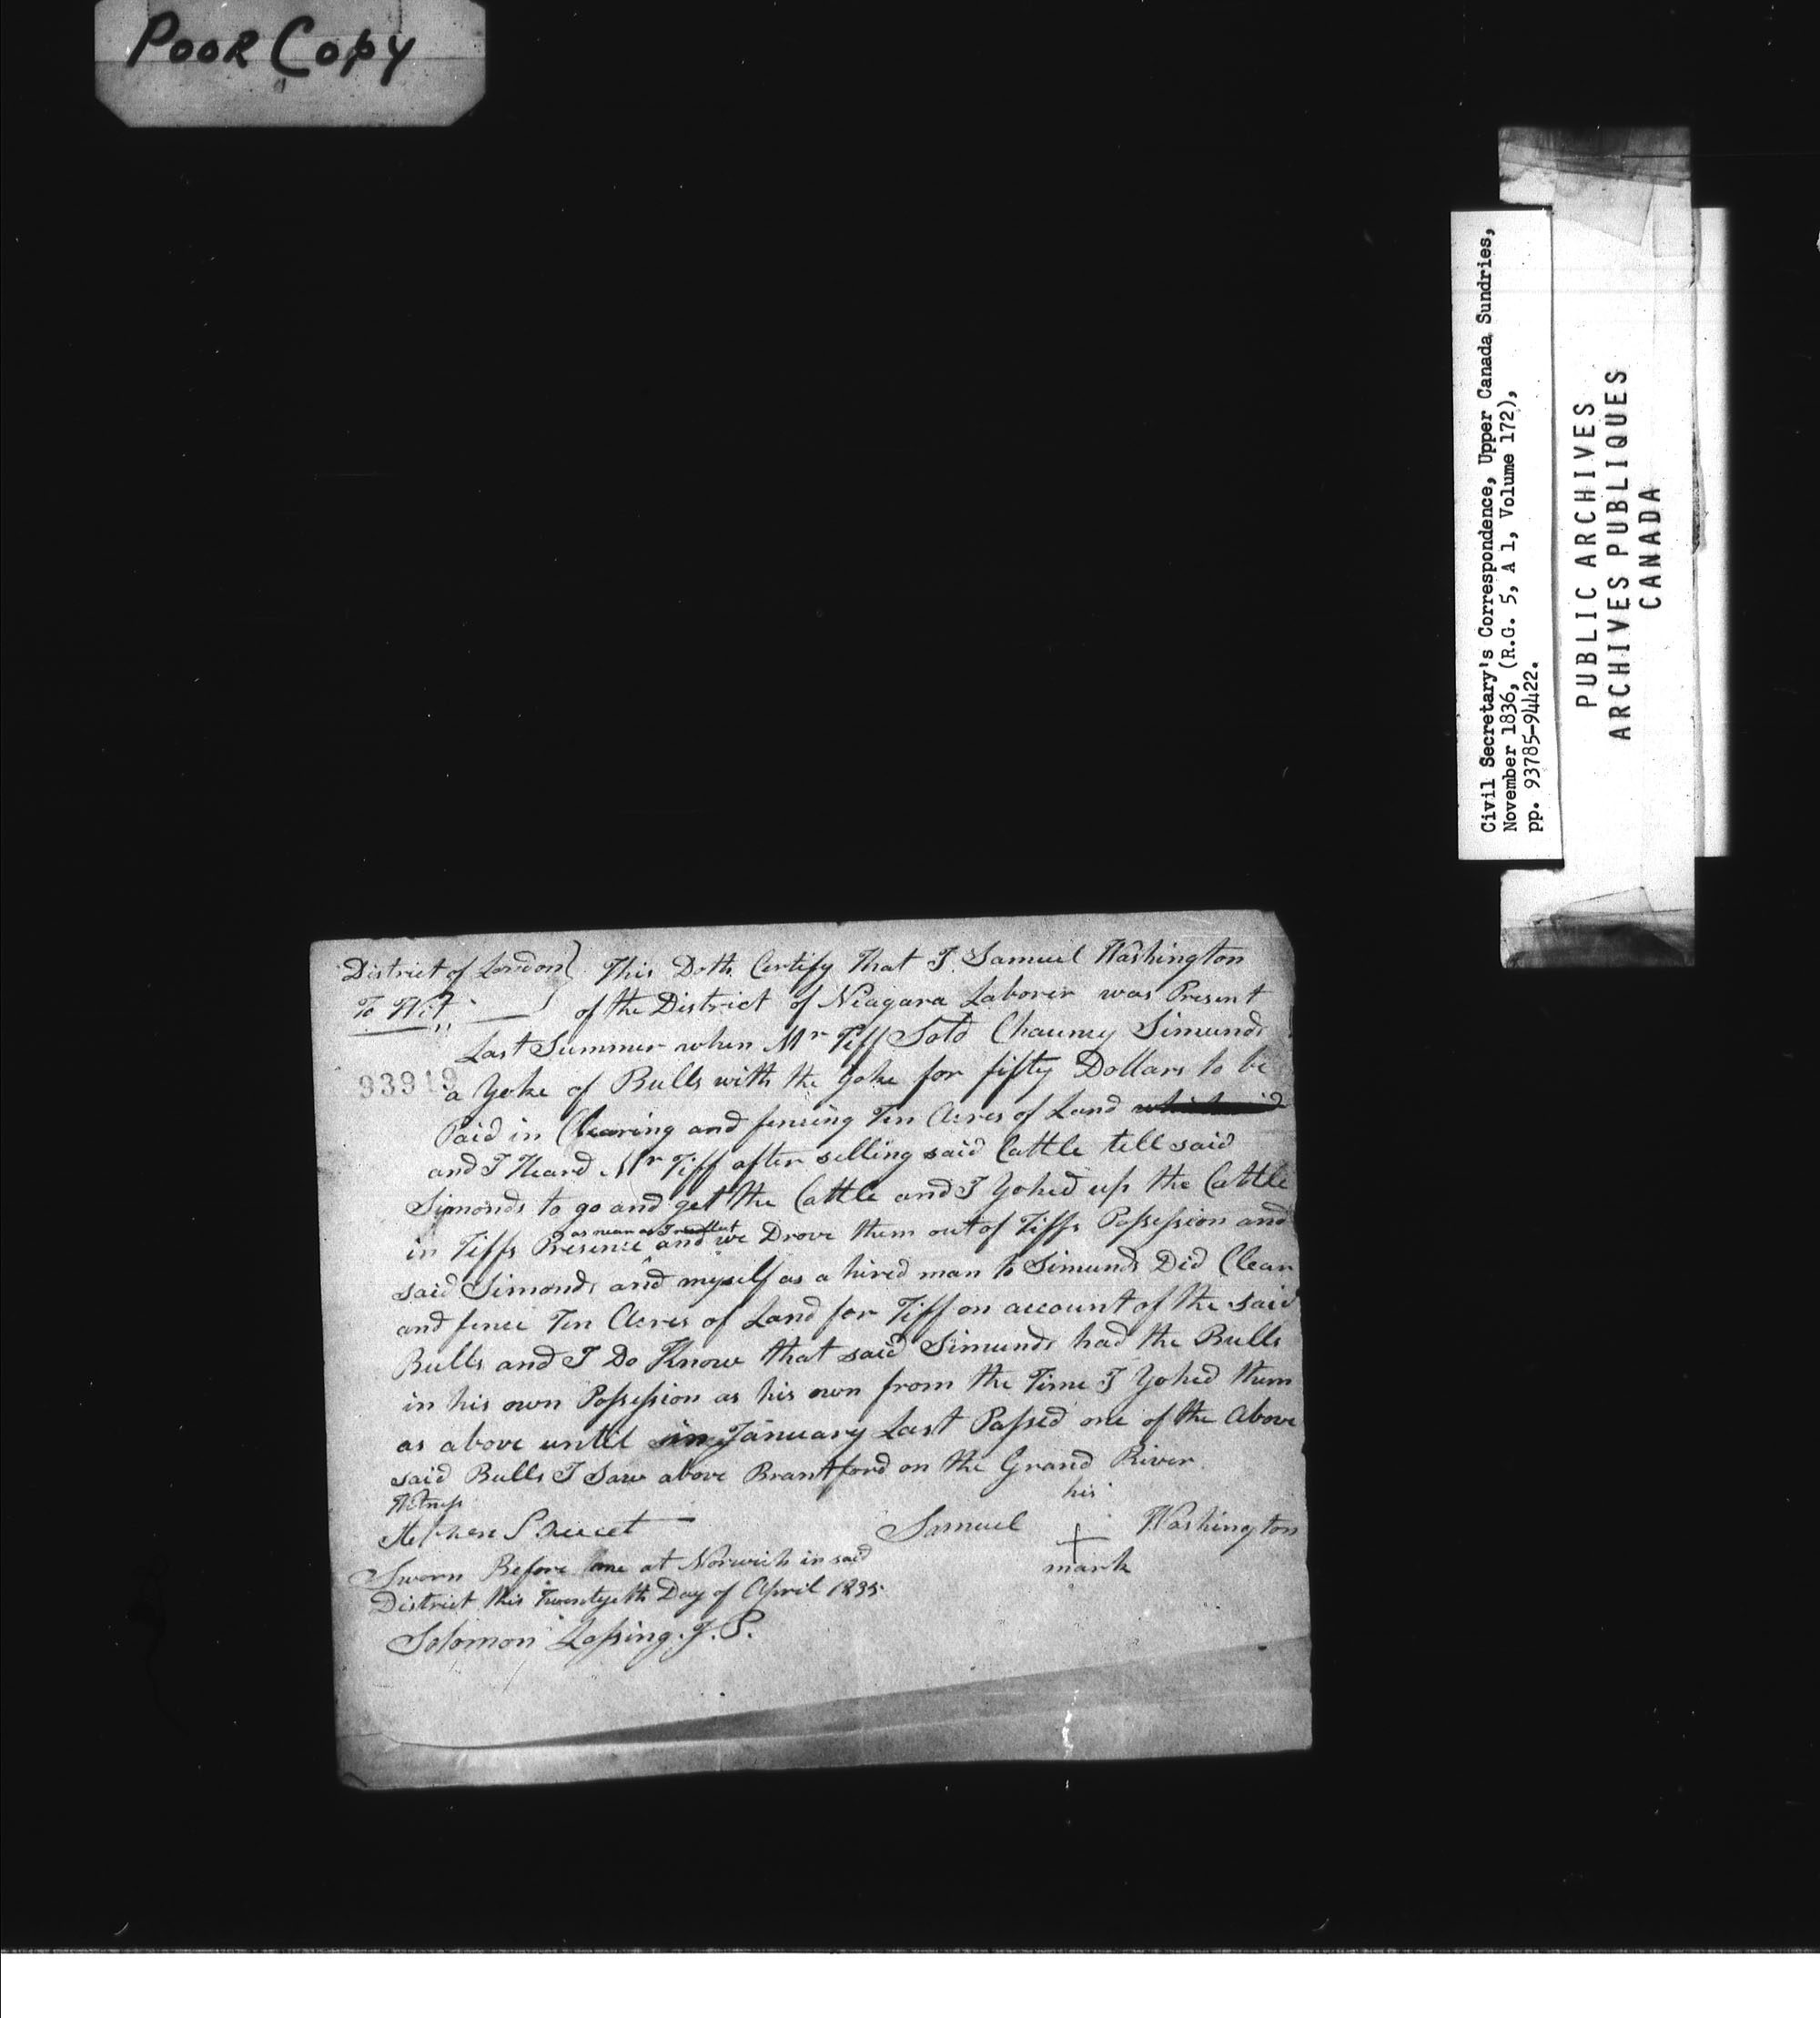 POOR COPY
Civil Secretary's Correspondence, Upper Canada Sundries,
November 1836, (R.G. 5, A 1, Volume 172),
pp. 93785-94422.
PUBLIC ARCHIVES
ARCHIVES PUBLIQUES
CANADA
District of London } This Doth Certify That I Samuel Washington
To Wit of the District of Niagara Laborer was Present
Last Summer when Mr Tiff Sold Chauncy Simunds
93919
a Yoke of Bulls with the Yoke for fifty Dollars to be
Paid in Clearing and fencing Ten Acres of Land
and I Heard Mr Tiff after selling said Cattle tell said
Simonds to go and get the Cattle and I Yoked up the Cattle
as near as I recollect
in Tiffs Presence and we Drove them out of Tiffs Possession and
said Simonds and myself as a hired man to Simunds Did Clear
and fence Ten Acres of Land for Tiff on account of the said
Bulls and I Do Know that said Simunds had the Bulls
in his own Possession as his own from the Time I Yoked them
as above until in January Last Passed one of the Above
said Bulls I Saw above Brantford on the Grand River
his
Witness
Samuel + Washington
mark
Sworn Before me at Norwich in said
District this Twentyeth Day of April 1835
Solomon Lossing J.P.